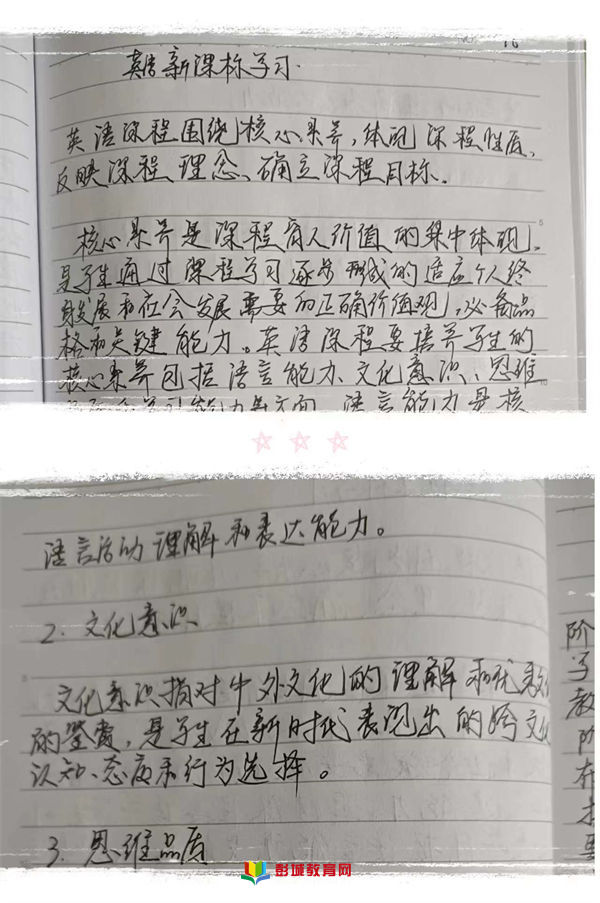 16
英语新课标学习
英语课程围绕核心素养,体现课程性质,
反映课程理念、确立课程目标.
核心素养是课程育人价值的集中体现,
是学生通过课程学习逐步形成的适应个人终
身发展和社会发展需要的正确价值观,必备品
格和关键能力。英语课程要培养学生的
核心素养包括语言能力、文化意识、思维
语言能力是核
语言活动理解和表达能力。
2. 文化意识
文化意识指对中外文化的理解和优秀文化
的鉴赏,是学生在新时代表现出的跨文化
认知、态度和行为选择。
3. 思维品质
阶
学
教
阶
彭城教育网